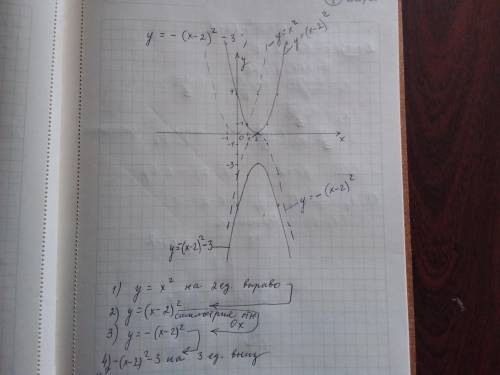 y = - (x-2)² - 3;
y=x²
y=(x-2)²
y
4
1
-1 0 2 x
-1
-3
y = -(x-2)²
y=-(x-2)²-3
1) y = x² на 2 ед. вправо
2) y = (x-2)² симметрия отн
Ox
3) y = -(x-2)²
4) -(x-2)²-3 на 3 ед. вниз